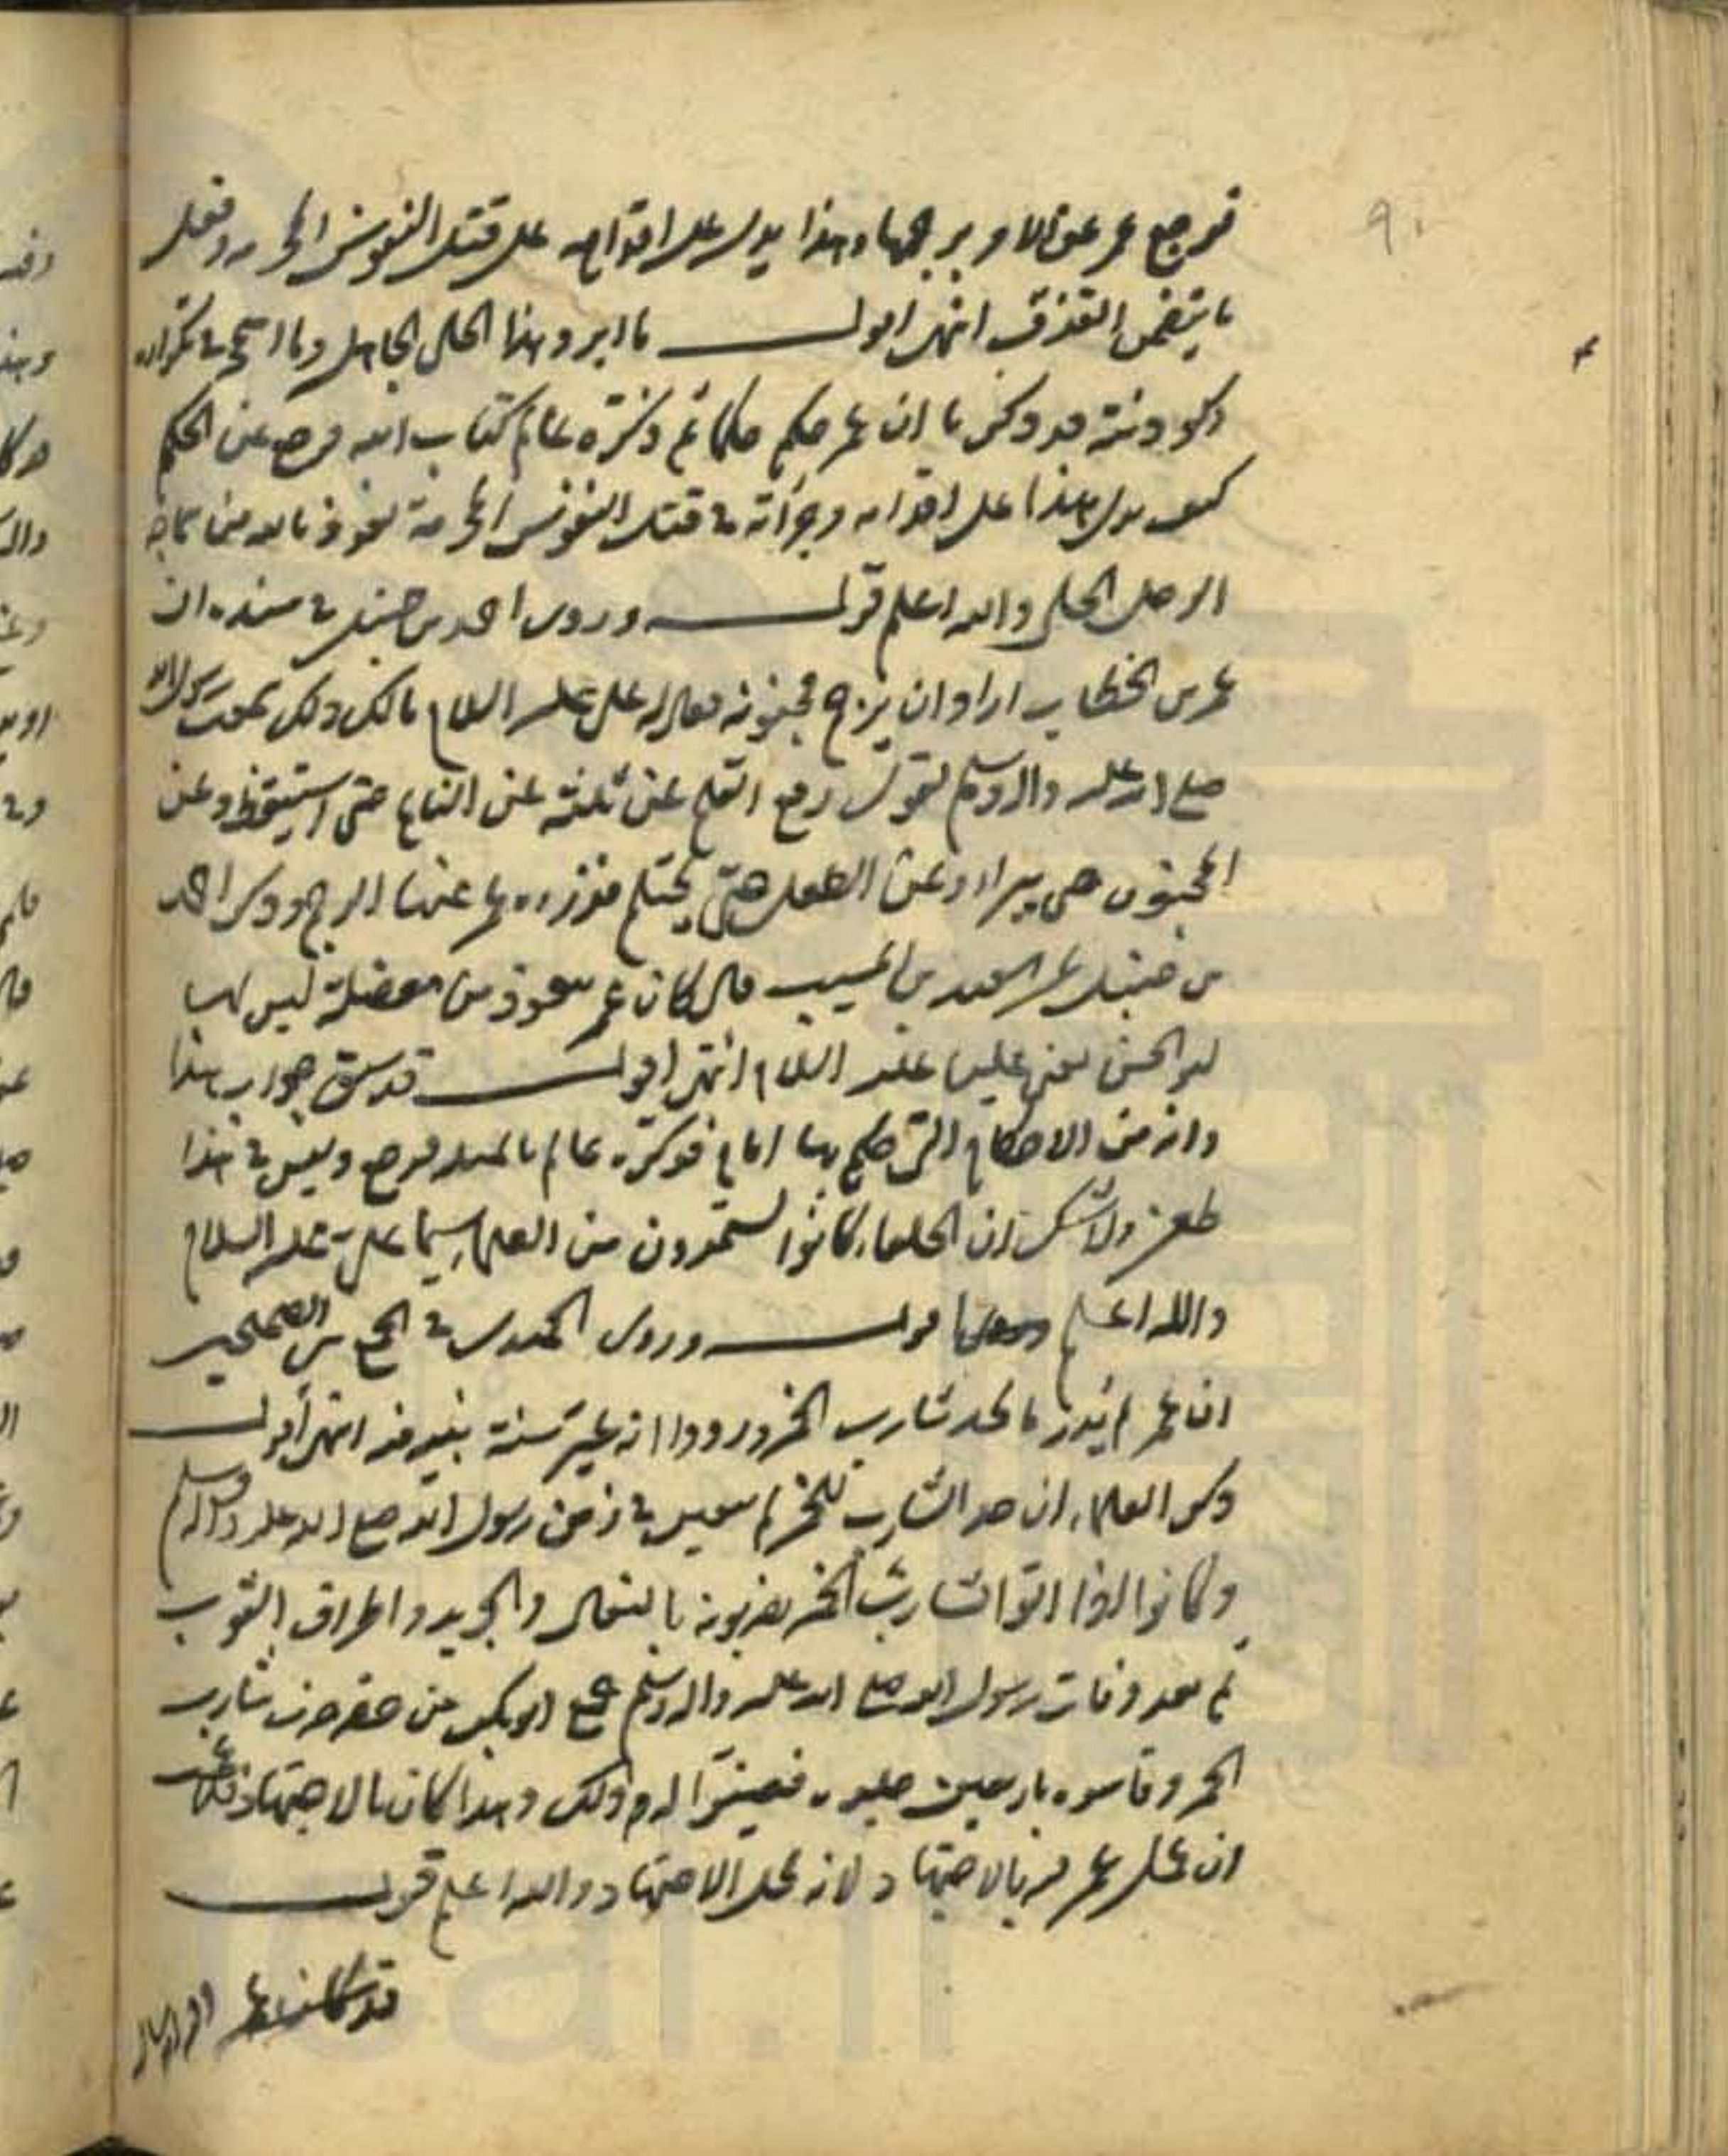 ٩٠
فرجع عمر عن الامر برجمها وهذا يدل على اقدامه على قتل النفوس المحرمة وفعل
ما يتضمن القذف انتهى اقول ما ابرد هذا الحلي الجاهل وما اسمج تكراره
ذكر ان عمر حكم حكما ثم ذكره عالم كتاب الله فرجع عن الحكم
كيف يدل هذا على اقدامه وجرأته في قتل النفوس المحرمة نعوذ بالله من
الرجل الحلي والله اعلم قوله وروى احمد بن حنبل في مسنده ان
عمر بن الخطاب اراد ان يرجم مجنونة فقال له علي عليه السلام مالك ذلك سمعت رسول الله
صلى الله عليه واله وسلم يقول رفع القلم عن ثلثة عن النائم حتى استيقظ وعن
المجنون حتى يبرا وعن الطفل حتى يحتلم فدرء عمر عنها الرجم وذكر احمد
بن حنبل عن سعيد بن المسيب قال كان عمر يتعوذ من معضلة ليس لها
ابو الحسن يعني عليا عليه السلام انتهى اقول قد سبق جواب هذا
وانه من الاحكام التي حكم بها امام فذكره عالم بالمسئلة فرجع وليس في هذا
طعن ولا شك ان الخلفاء كانوا يستمدون من العلماء سيما علي عليه السلام
والله اعلم قوله وروى الحميدي في الجمع بين الصحيحين
ان عمر لم يدر ما حد شارب الخمر انه غير سنة نبيه فيه انتهى اقول
ذكر العلماء ان حد الشارب للخمر لم يتعين في زمن رسول الله صلى الله عليه واله وسلم
وكانوا اذا اتوا الشارب الخمر يضربونه بالنعال والجريد واطراف الثوب
ثم بعد وفات رسول الله صلى الله عليه واله وسلم جمع ابو بكر من حضر ضرب شارب
الخمر وقاسوه باربعين جلدة فعينوا لهم ذلك وهذا كان بالاجتهاد
ان عمل عمر فيه بالاجتهاد لانه محل الاجتهاد والله اعلم قوله